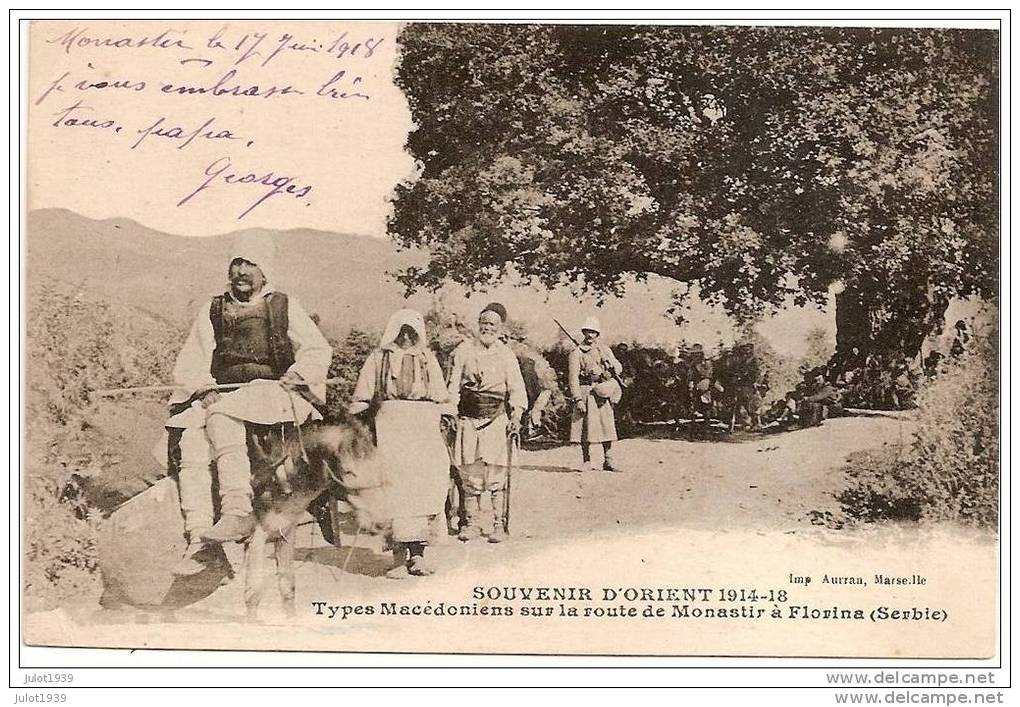 Monastir le 17 Juin 1918
je vous embrasse bien
tous, papa,
Georges.
Imp Aurran, Marseille
SOUVENIR D'ORIENT 1914-18
Types Macédoniens sur la route de Monastir à Florina (Serbie)
julot1939
www.delcampe.net
julot1939
www.delcampe.net